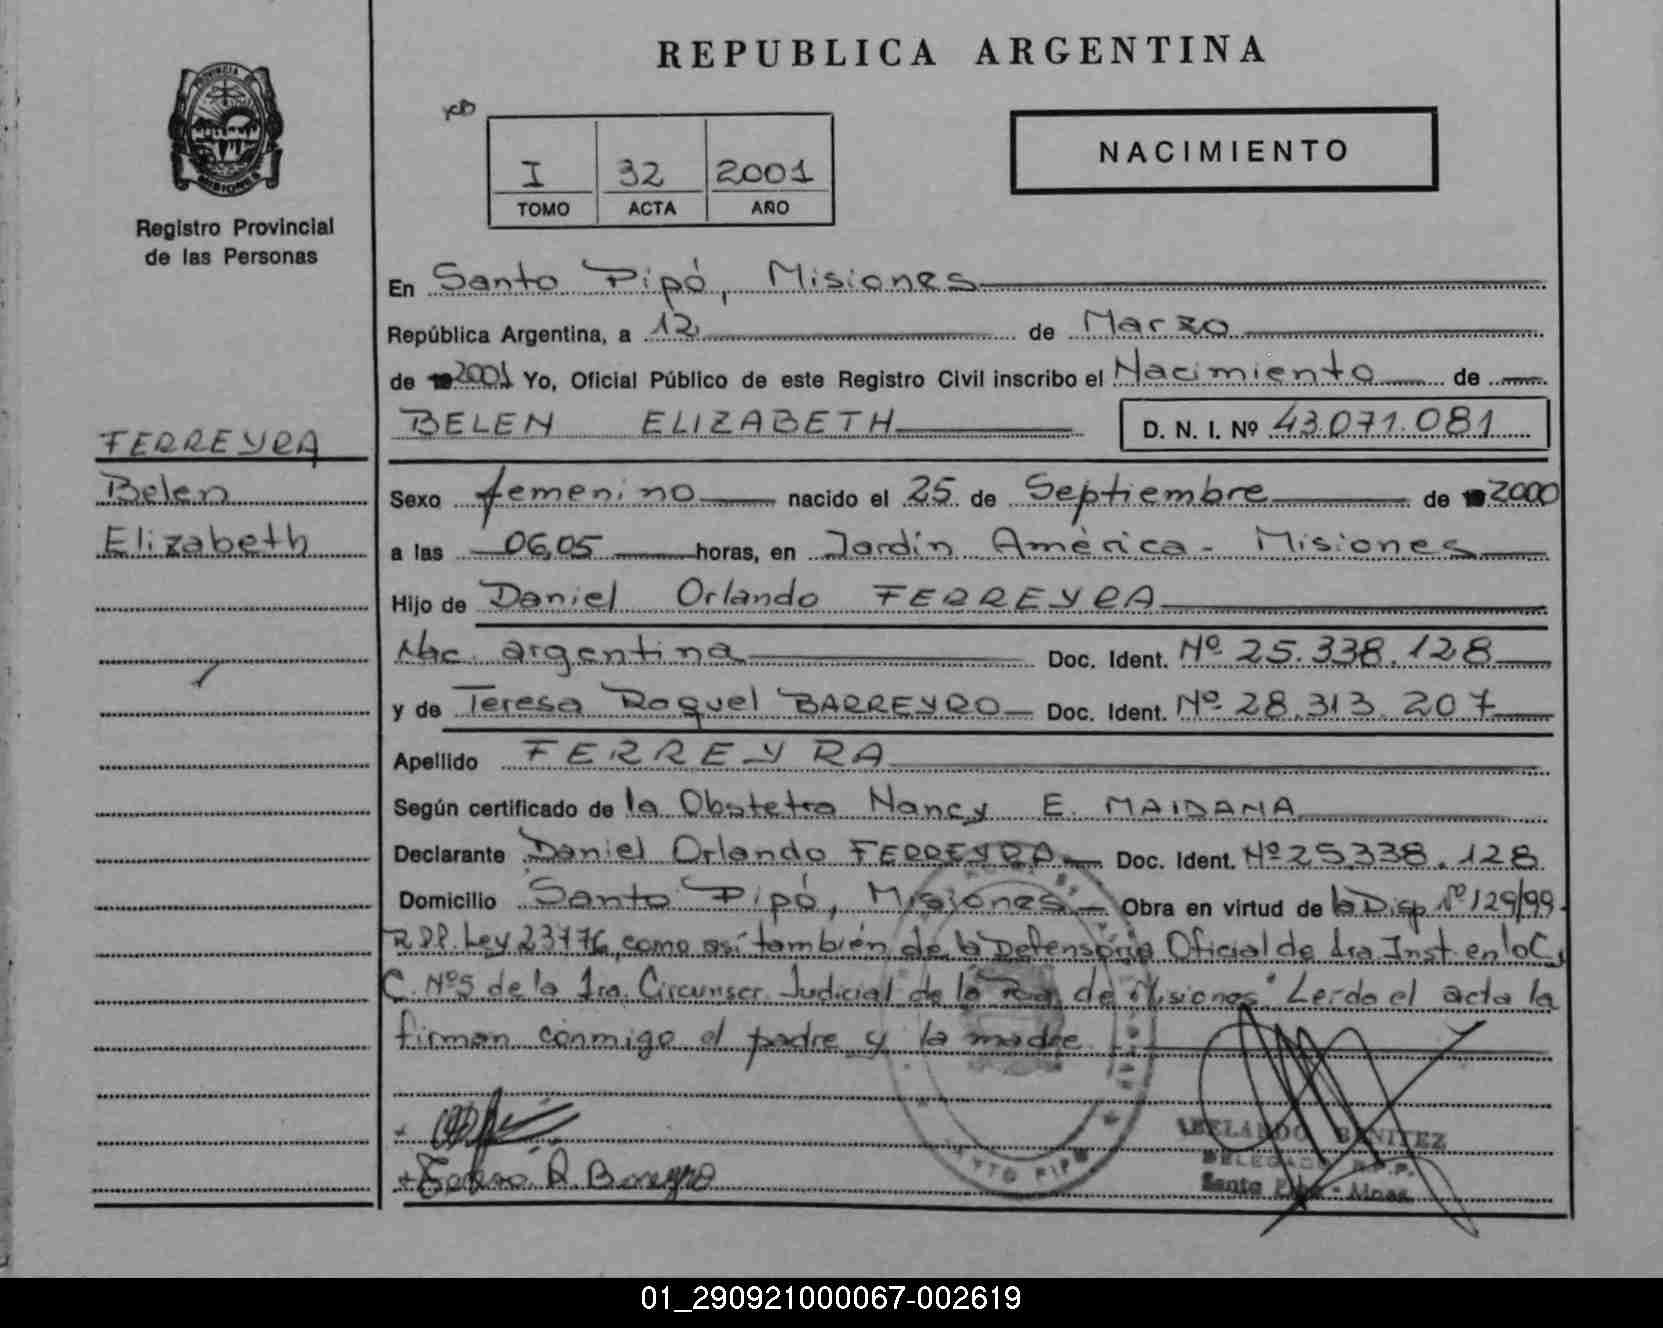 REPUBLICA ARGENTINA
PROVINCIA DE
MISIONES
Registro Provincial
de las Personas
I 32 2001
TOMO ACTA AÑO
NACIMIENTO
En Santo Pipó, Misiones
República Argentina, a 12 de Marzo
de 2001 Yo, Oficial Público de este Registro Civil inscribo el Nacimiento de
BELEN ELIZABETH D. N. I. Nº 43.071.081
FERREYRA
Belen
Elizabeth
Sexo femenino nacido el 25 de Septiembre de 2000
a las 06,05 horas, en Jardín América - Misiones
Hijo de Daniel Orlando FERREYRA
Nac. argentina Doc. Ident. Nº 25.338.128
y de Teresa Raquel BARREYRO Doc. Ident. Nº 28.313.207
Apellido FERREYRA
Según certificado de la Obstetra Nancy E. MAIDANA
Declarante Daniel Orlando FERREYRA Doc. Ident. Nº 25.338.128
Domicilio Santo Pipó, Misiones Obra en virtud de la Disp. Nº 129/99
R.P.P. Ley 23776, como así también de la Defensoría Oficial de 1ra Inst. en lo C.
C. Nº5 de la 1ra. Circunscr. Judicial de la Pcia de Misiones" Leída el acta la
firman conmigo el padre y la madre
ABELARDO BENITEZ
DELEGADO R.P.P.
Santo Pipó - Mnes.
STO PIPO
Teresa R. Barreyro
01_290921000067-002619